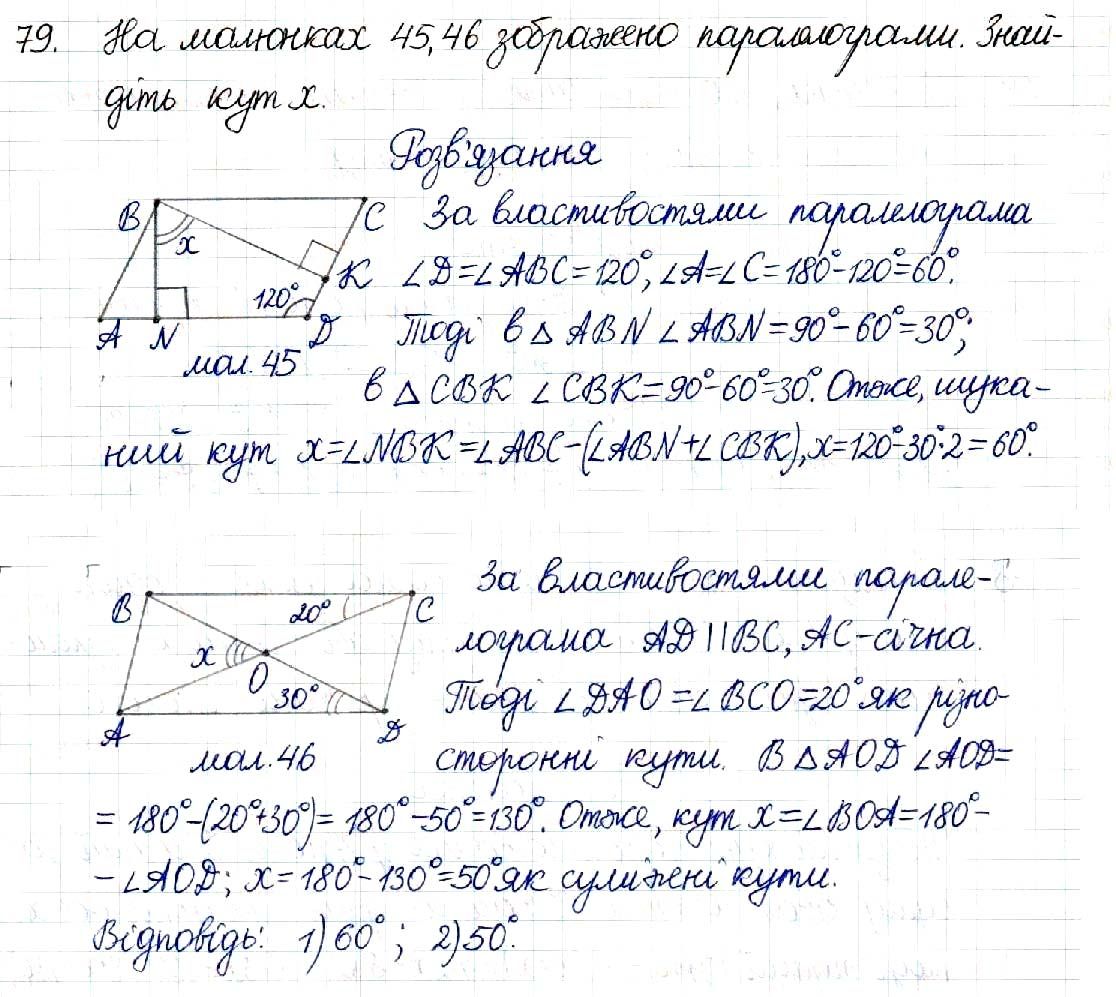 79. На малюнках 45,46 зображено паралелограми. Знай-
діть кут x.
Розв'язання
B C x K 120° A N D
мал. 45
За властивостями паралелограма
∠D=∠ABC=120°, ∠A=∠C=180°-120°=60°.
Тоді в △ABN ∠ABN=90°-60°=30°;
в △CBK ∠CBK=90°-60°=30°. Отже, шука-
ний кут x=∠NBK=∠ABC-(∠ABN+∠CBK), x=120°-30°·2=60°.
B C 20° x O 30° A D
мал. 46
За властивостями парале-
лограма AD||BC, AC-січна.
Тоді ∠DAO=∠BCO=20° як різно-
сторонні кути. В △AOD ∠AOD=
=180°-(20°+30°)=180°-50°=130°. Отже, кут x=∠BOA=180°-
-∠AOD; x=180°-130°=50° як суміжні кути.
Відповідь: 1) 60°; 2) 50°.